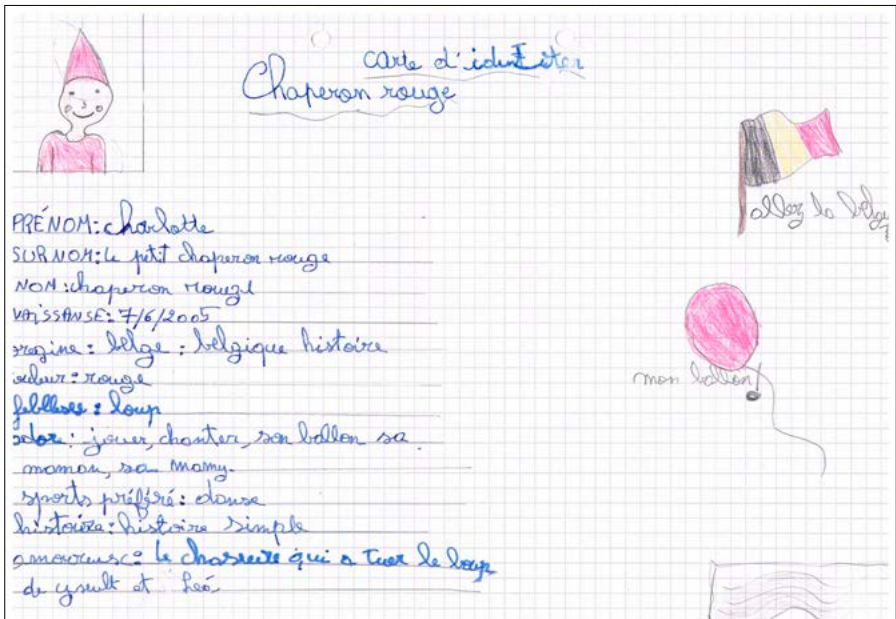 carte d'identiter
Chaperon rouge
allez la belge
PRÉNOM: charlotte
SURNOM: le petit chaperon rouge
NOM: chaperon rouge
NAISSANSE: 7/6/2005
origine: belge : belgique histoire
couleur: rouge
mon ballon
: loup
ador: jouer, chanter, son ballon sa
maman, sa mamy.
sports préféré: danse
histoire: histoire simple
amoureuse: le qui a tuer le loup
de ysult et Léo